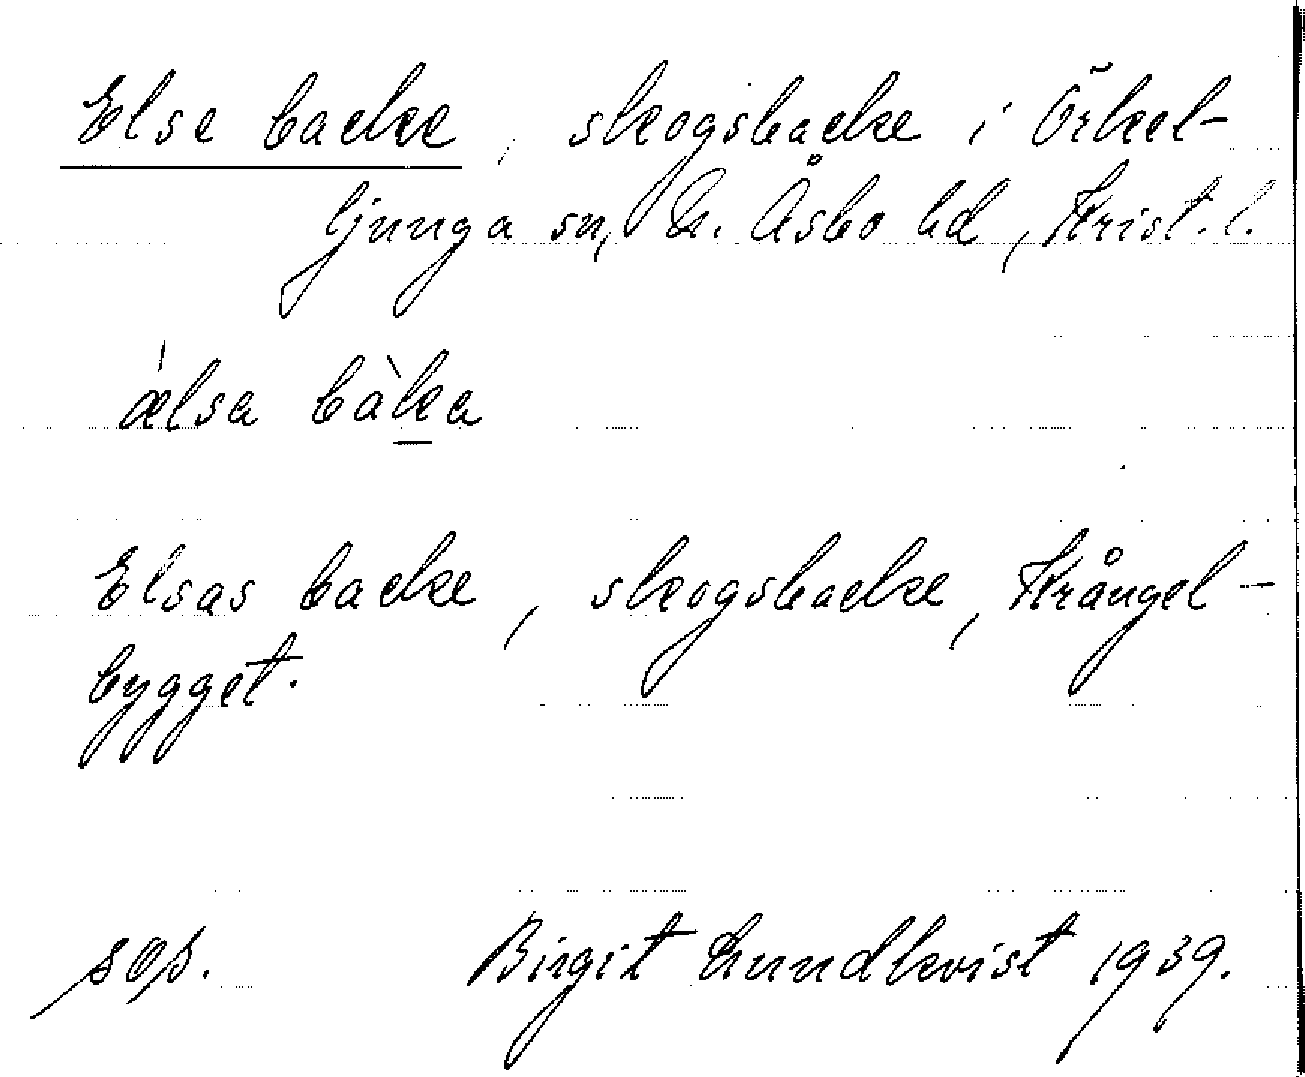 Else backe, skogsbacke i Örkel-
ljunga sn, N. Åsbo hd, Krist. l.
ælsa bàka
Elsas backe, skogsbacke, Krångel-
bygget.
Birgit Lundkvist 1939.